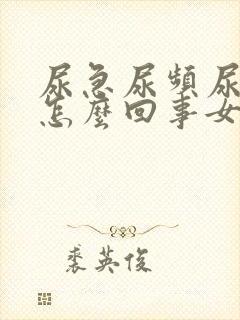 尿急尿頻尿
怎麼回事女
裘英俊